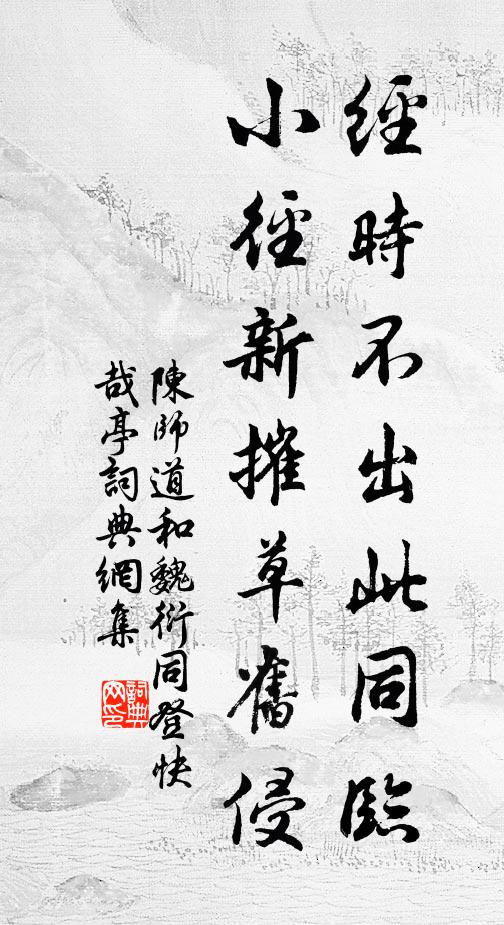 經時不出此同臨
小徑新摧草舊侵
陳師道和魏衍同登快
哉亭詞典網集
詞典
网印